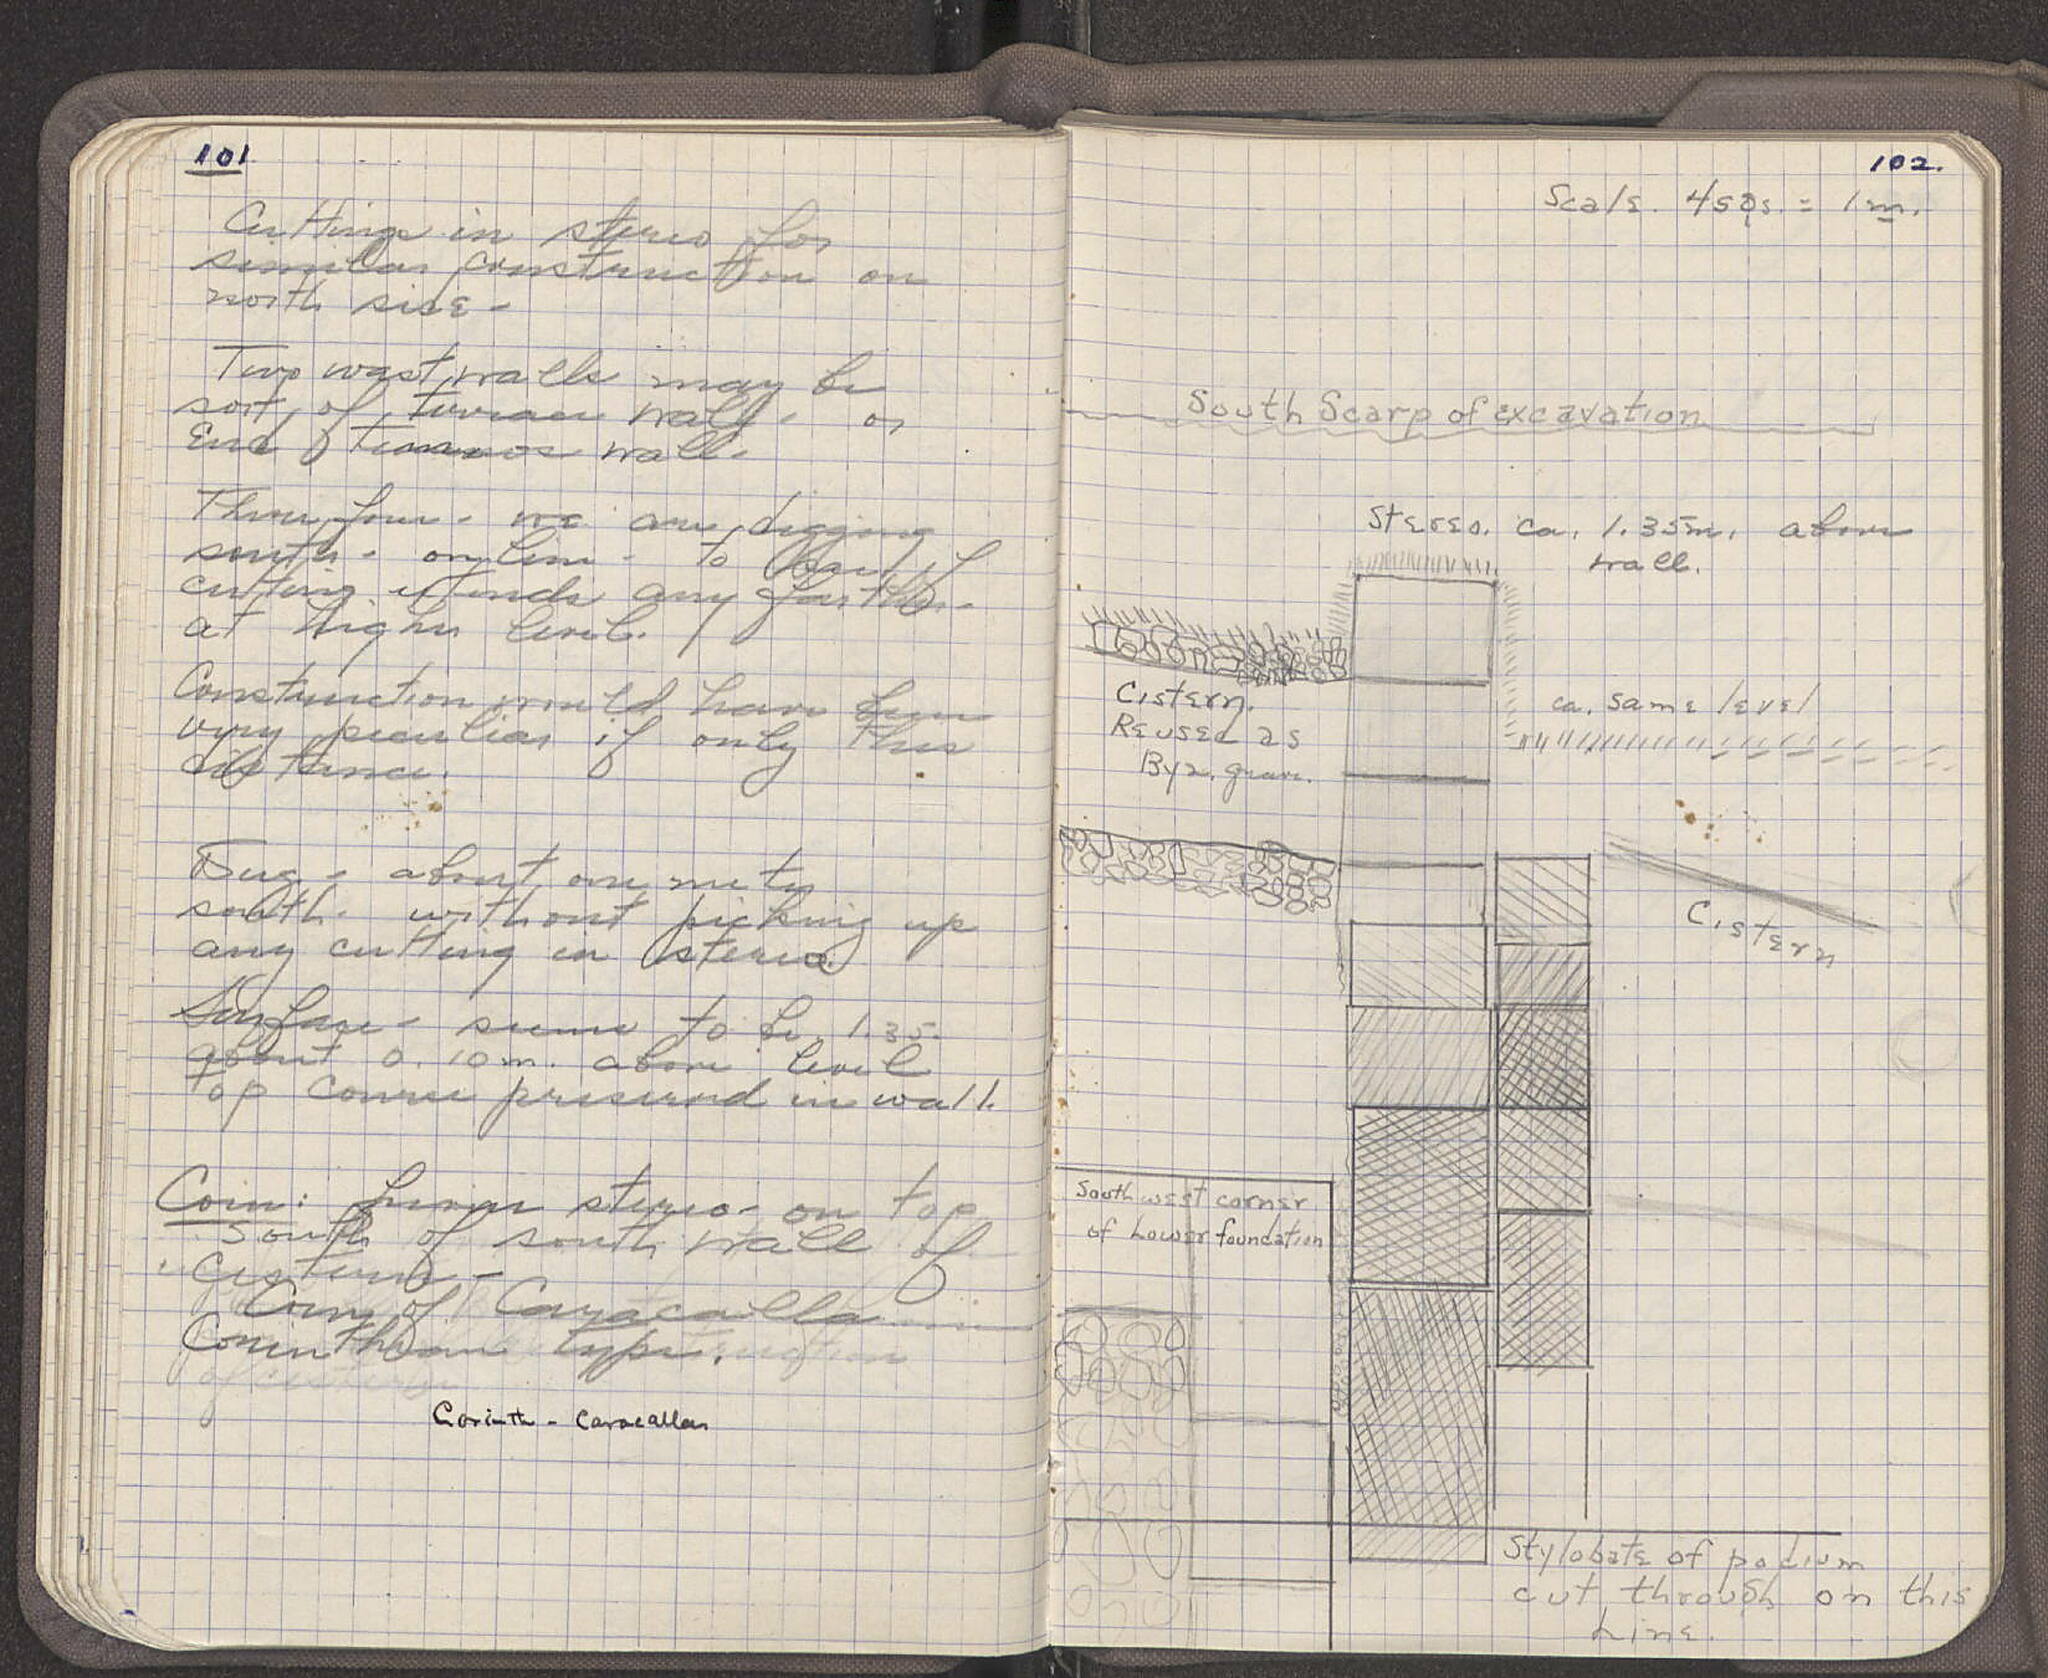 101
Cuttings in stereo for
similar construction on
north side -
Two west walls may be
sort of terrace wall - or
End of Temenos wall -
Therefore - we are digging
south - on line - to see if
cutting extends any further -
at higher level.
Construction would have been
very peculiar if only this
distance.
Dug - about one meter
south - without picking up
any cutting in stereo
Surface - seems to be 1.35.
about 0.10m. above level
top course preserved in wall.
Coin: from stereo - on top
South of south wall of
Cistern -
Coin of Caracalla
Corinthian type.
of cistern
Corinth - Caracalla
102.
Scale. 4 sqs. = 1 m.
South Scarp of excavation
Stereo. ca. 1.35m. above
wall.
Cistern.
Reused as
Byz. grave.
ca. same level
Cistern
South west corner
of Lower foundation
Stylobate of podium
cut through on this
Line.